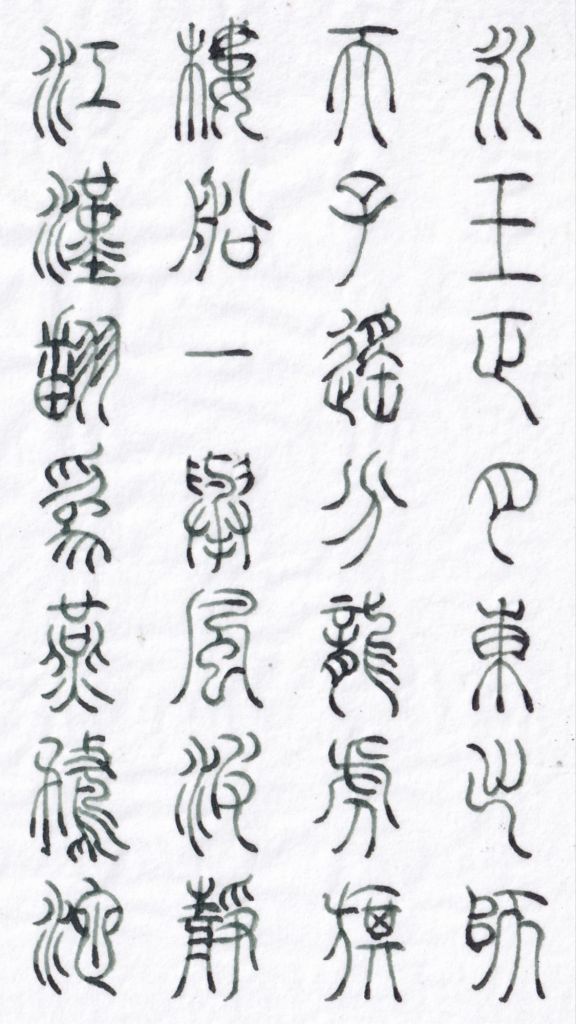 永王正月東出師
天子遙分龍虎旗
樓船一舉風波靜
江漢翻爲燕鶩池